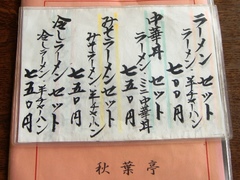 ラーメンセット
ラーメン・半チャーハン
七〇〇円
中華丼セット
ラーメン・ミニ中華丼
七五〇円
みそラーメンセット
みそラーメン・半チャーハン
七五〇円
冷しラーメンセット
冷しラーメン・半チャーハン
七五〇円
秋葉亭